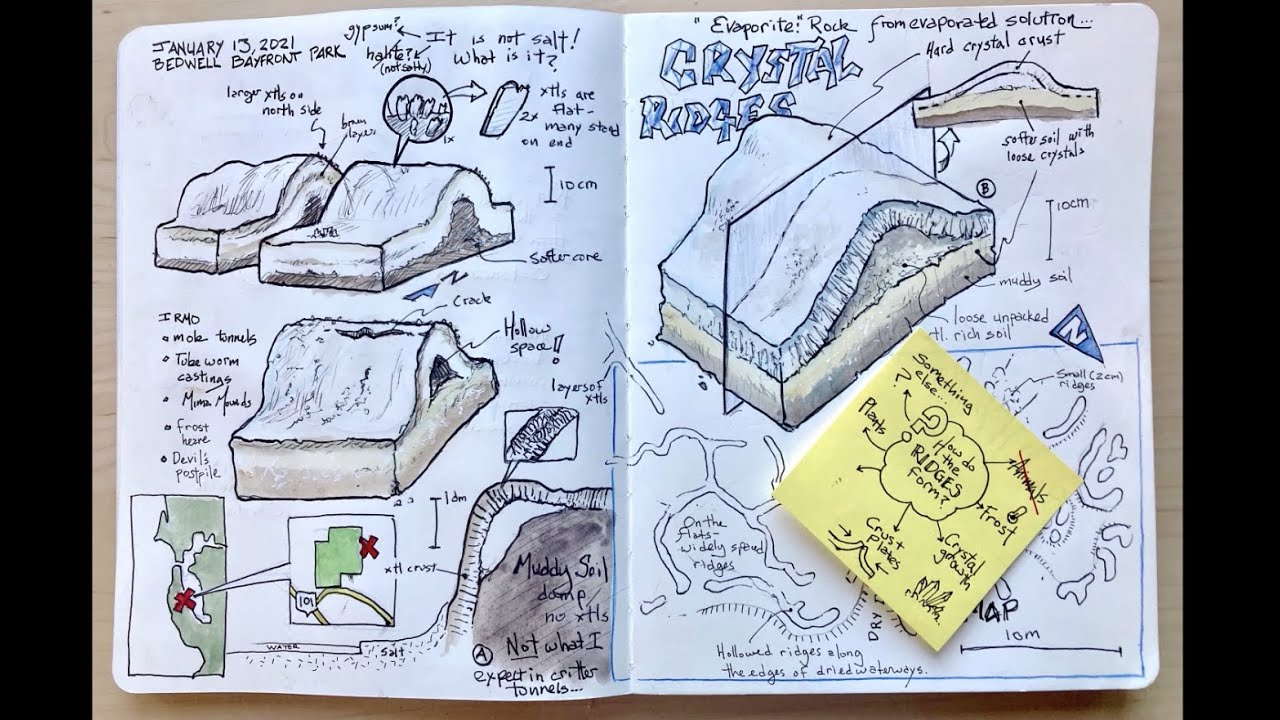 JANUARY 13, 2021
BEDWELL BAYFRONT PARK
gypsum?
halite?
(not salty)
It is not salt!
What is it?
larger xtls on
north side
brown
layer
1x
2x
xtls are
flat-
many stand
on end
10cm
softer core
N
Crack
IRMO
mole tunnels
Tube worm
castings
Mima Mounds
frost
heave
Devil's
postpile
Hollow
space!!
layers of
xtls
1dm
xtl crust
101
WATER
Salt
A
Muddy Soil
damp
no xtls
Not what I
expect in critter
tunnels...
"Evaporite:" Rock from evaporated solution...
CRYSTAL
RIDGES
Hard crystal crust
softer soil with
loose crystals
B
10cm
muddy soil
loose unpacked
xtl. rich soil
N
Small (2cm)
ridges
Something
else...
?
Plants
How do
the
RIDGES
form?
Animals
Frost
Crystal
growth
Crust
plates
On the
flats-
widely spaced
ridges
DRY
MAP
10m
Hollowed ridges along
the edges of dried waterways.